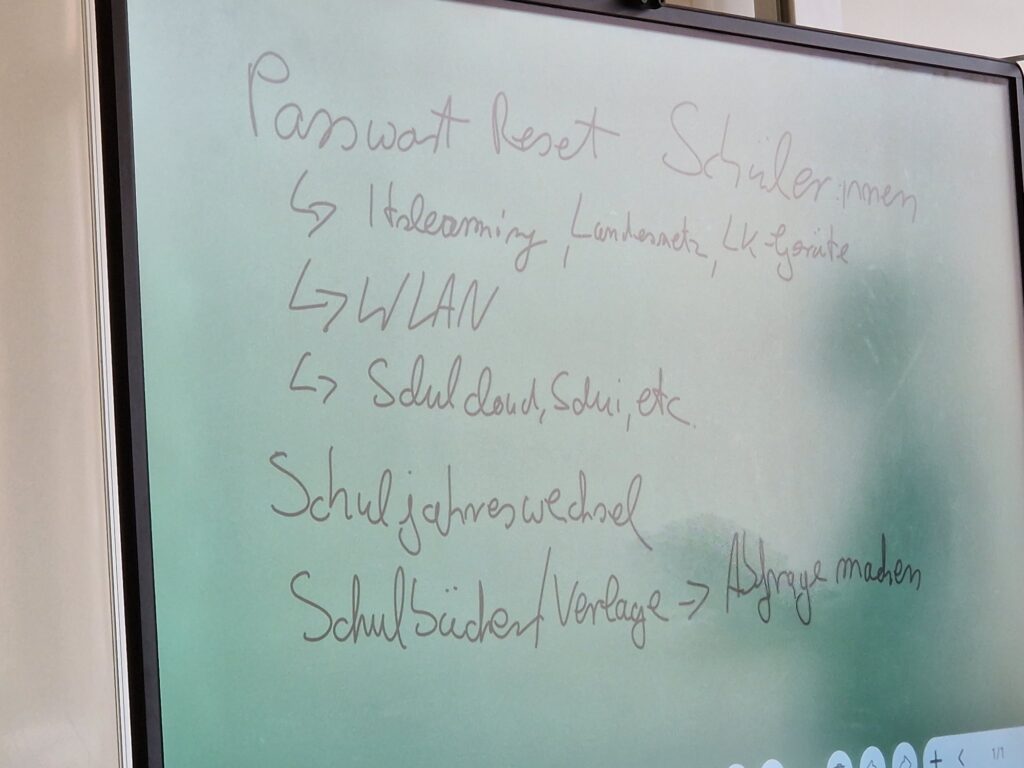 Passwort Reset Schüler:innen
↳ Itslearning, Landesnetz, LK-Geräte
↳ WLAN
↳ Schulcloud, Schui, etc.
Schuljahreswechsel
Schulbücher/Verlage → Abfrage machen
1/1